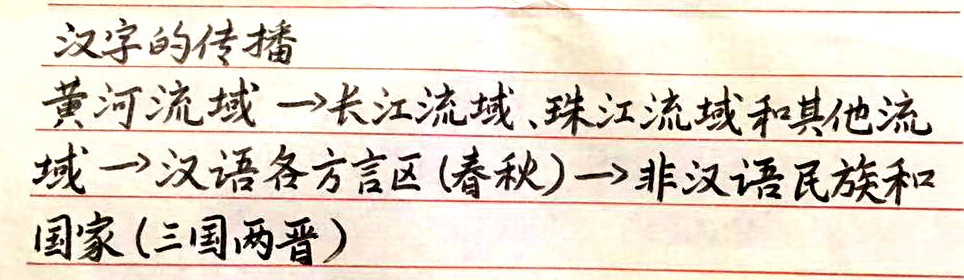 汉字的传播
黄河流域→长江流域、珠江流域和其他流
域→汉语各方言区(春秋)→非汉语民族和
国家(三国两晋)